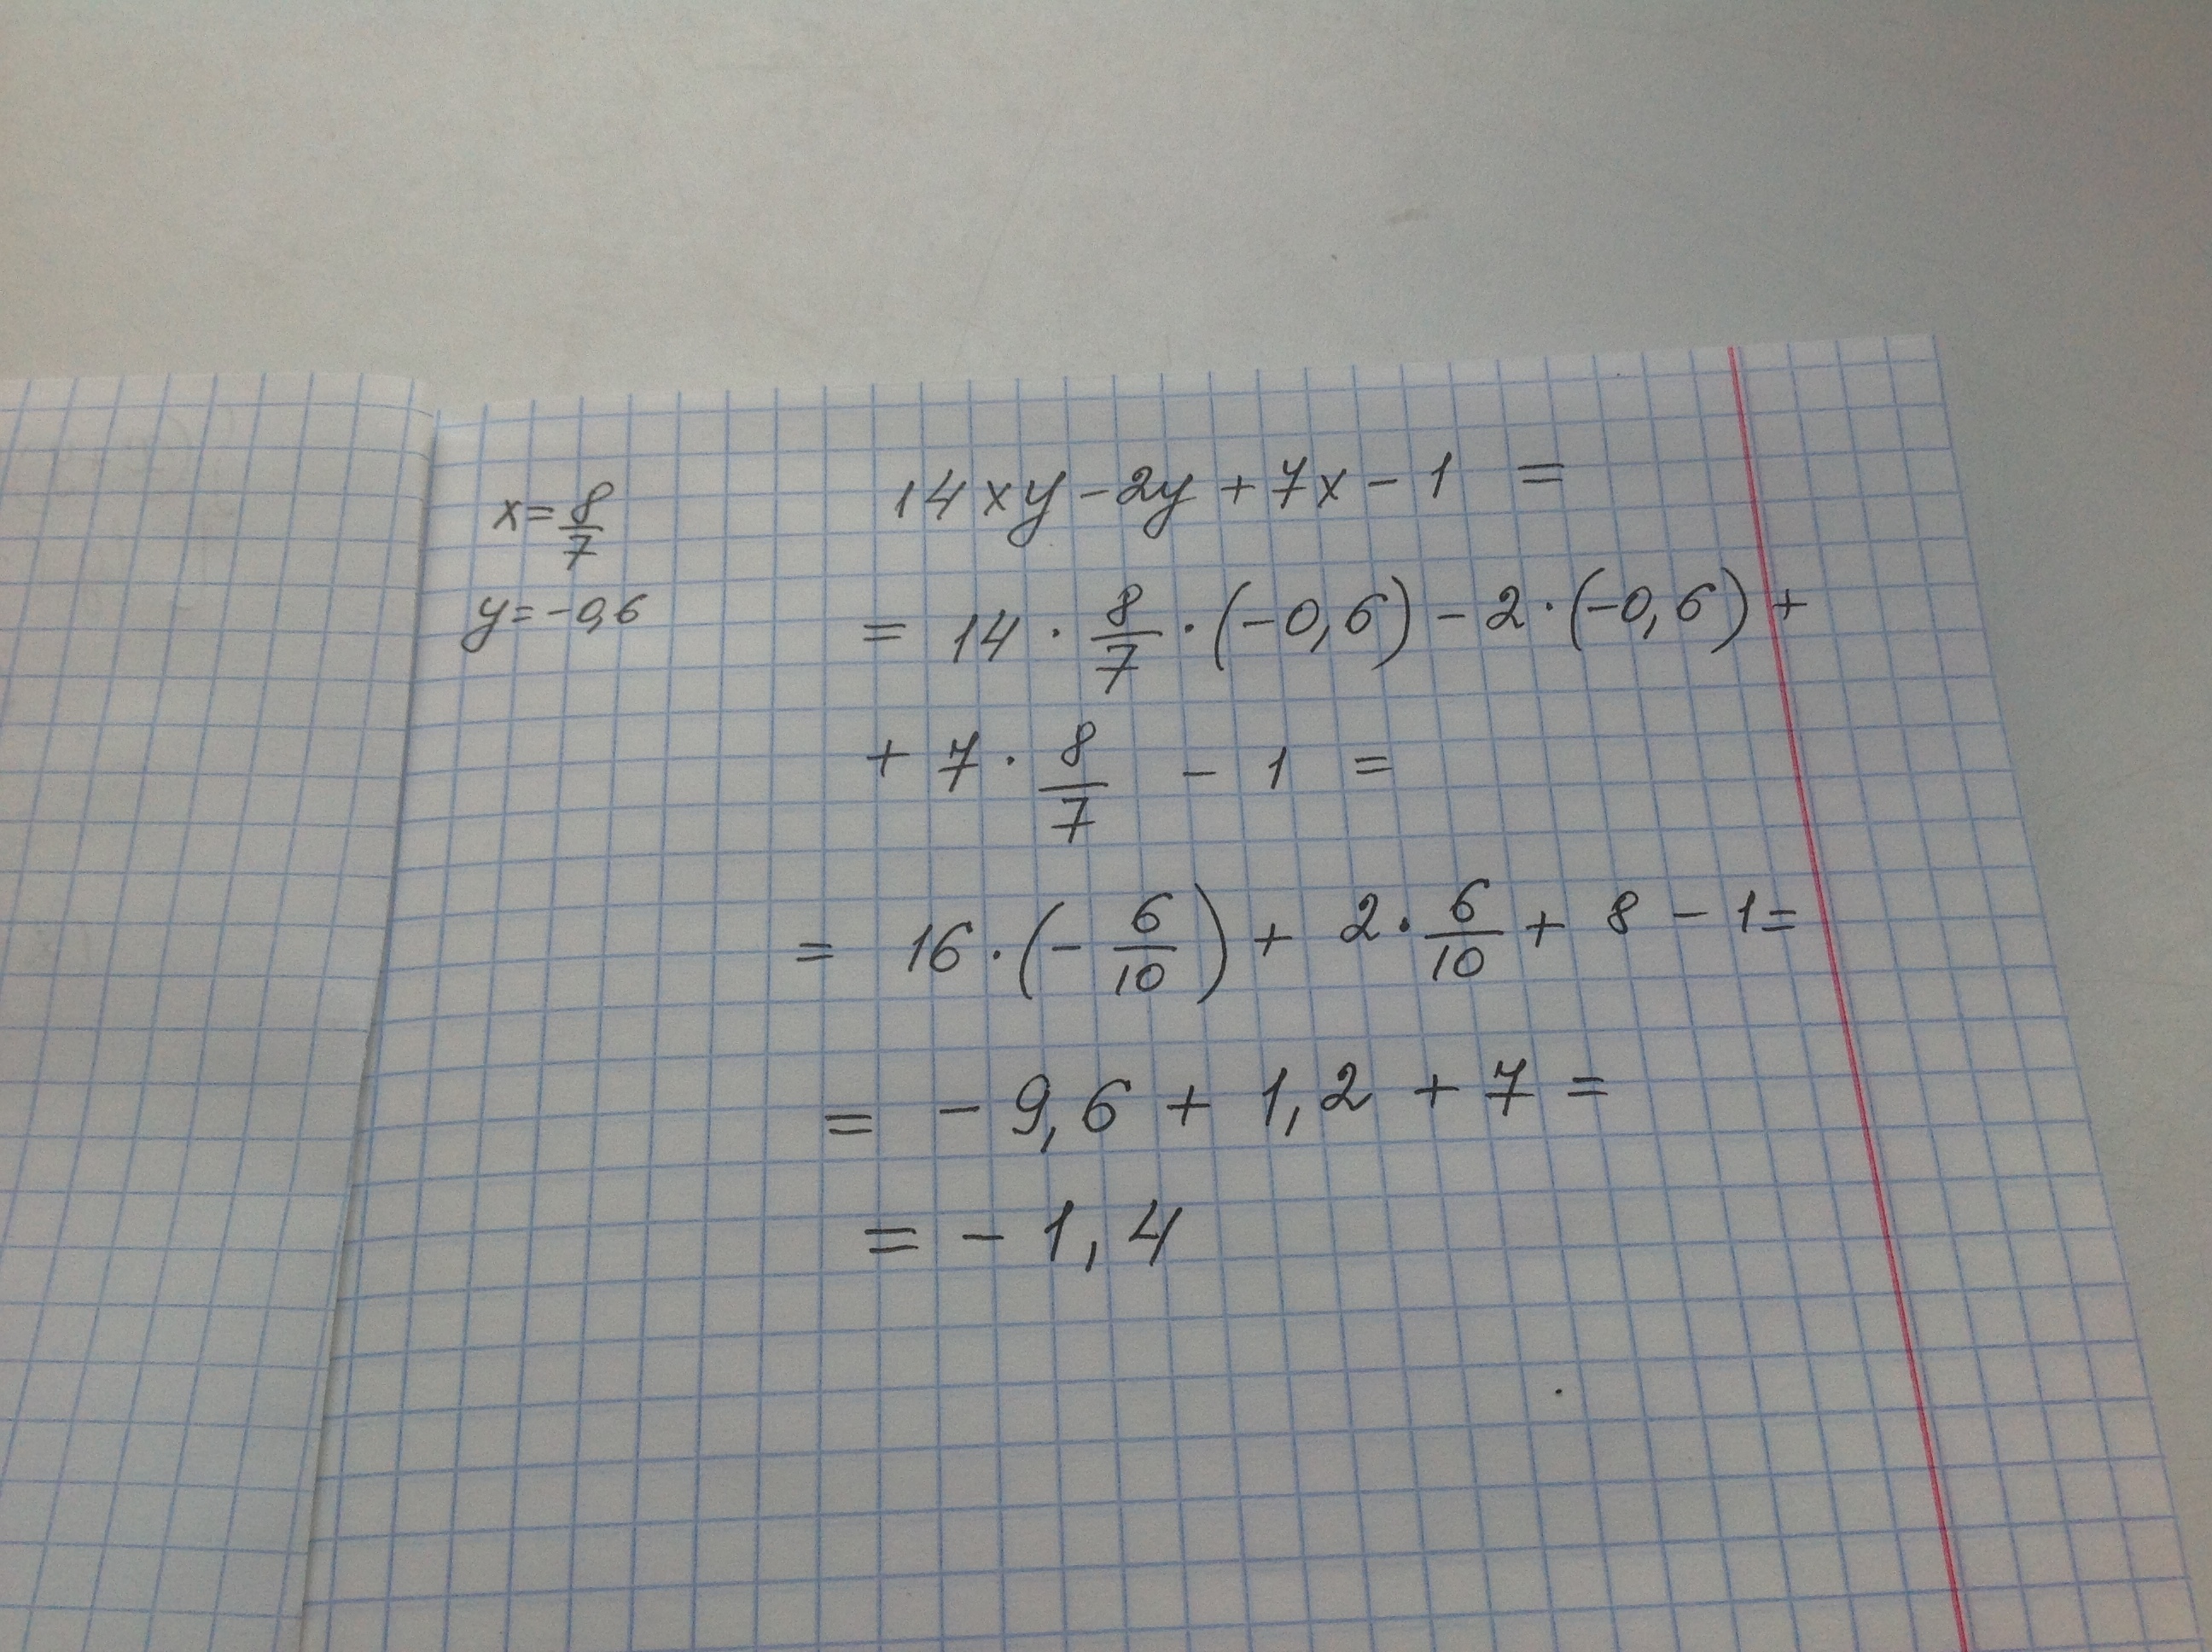 x = 8/7
y = -0,6
14xy - 2y + 7x - 1 =
= 14 · 8/7 · (-0,6) - 2 · (-0,6) +
+ 7 · 8/7 - 1 =
= 16 · (- 6/10) + 2 · 6/10 + 8 - 1 =
= - 9,6 + 1,2 + 7 =
= - 1,4